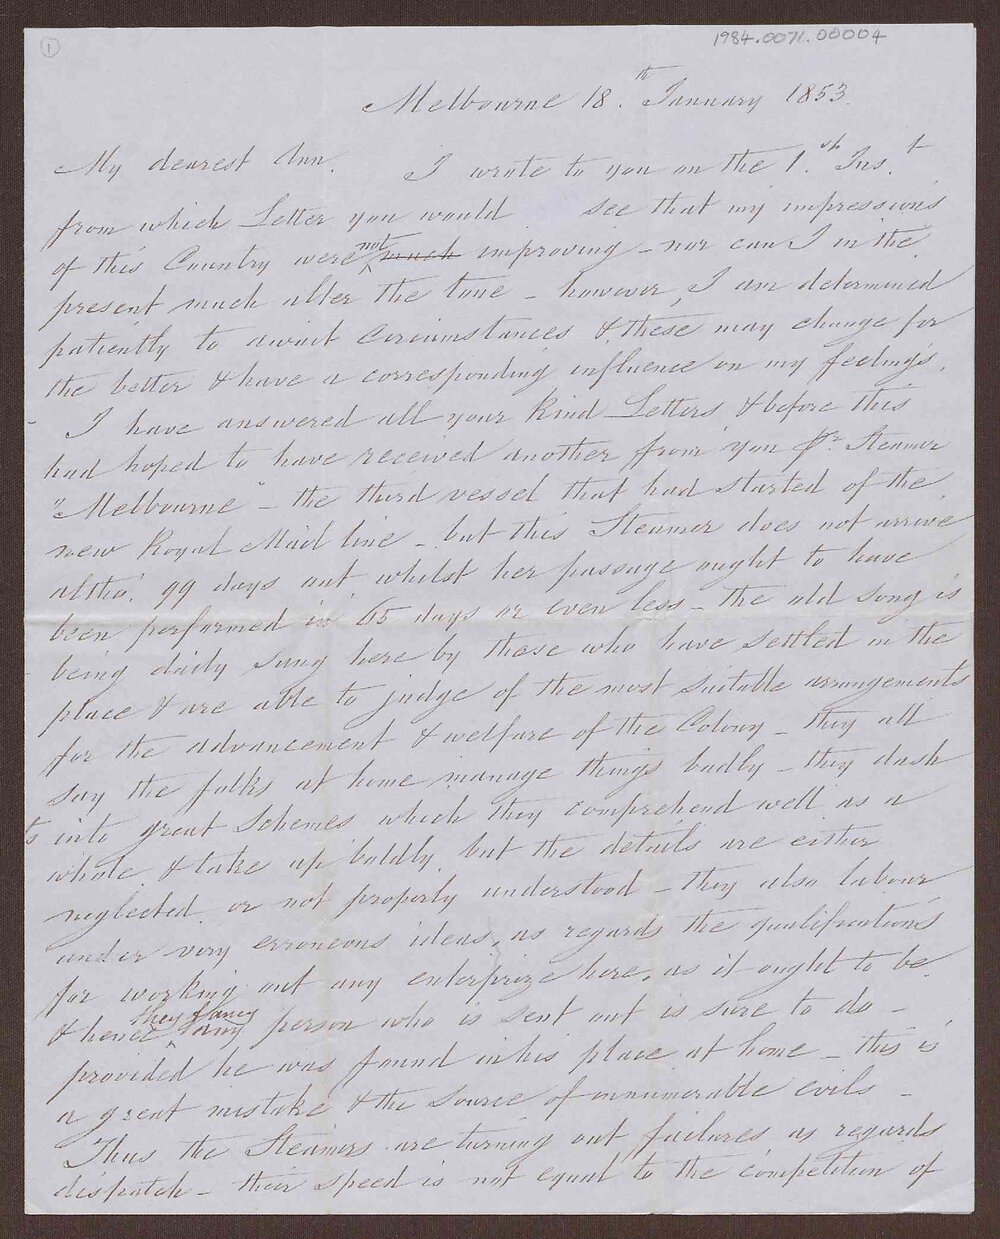 1
1984.0071.00004
Melbourne 18.th January 1853.
My dearest Ann. I wrote to you on the 1.st Ins.t
from which Letter you would see that my impressions
of this Country were not much improving - nor can I in the
present much alter the tone - however, I am determined
patiently to await Circumstances & these may change for
the better & have a corresponding influence on my feelings.
I have answered all your kind Letters & before this
had hoped to have received another from you pr. Steamer
"Melbourne" - the third vessel that had started of the
new Royal Mail line - but this Steamer does not arrive
altho'. 99 days out whilst her passage ought to have
been performed in 65 days or even less - the old song is
being daily sung here by those who have settled in the
place & are able to judge of the most suitable arrangements
for the advancement & welfare of the Colony - they all
say the folks at home manage things badly - they dash
into great Schemes which they comprehend well as a
whole & take up boldly but the details are either
neglected or not properly understood - they also labour
under very erroneous ideas, as regards the qualifications
for working out any enterprize here, as it ought to be.
& hence they fancy any person who is sent out is sure to do -
provided he was found in his place at home - this is
a great mistake & the source of innumerable evils -
Thus the Steamers are turning out failures as regards
dispatch - their speed is not equal to the competition of